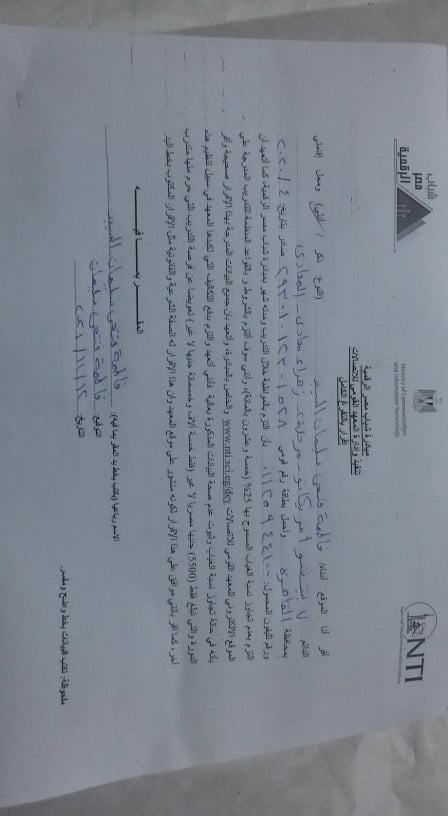 شباب
مصر
الرقمية
Ministry of Communication
and Information Technology
NTI
National Telecommunication Institute
مبادرة شباب مصر الرقمية
تنفيذ وإدارة المعهد القومي للاتصالات
إقرار بالتفرغ الكامل
أقر أنا الموقع أدناه/ فاطمة فتحى سليمان السيد (النوع: ذكر / أنثى) ومحل إقامتي
الدائم ٧ أمريكانو - مرحلة - زهراء معادى - المعادى
بمحافظة القاهرة وأحمل بطاقة رقم قومي صادر بتاريخ: ٤ /٢٠٢٠
ورقم تليفون المحمول: بأن التزم بالمواظبة خلال التدريب ومدته شهر بمبادرة شباب مصر الرقمية، كما أتعهد أن
التزم بعدم تجاوز نسبة الغياب المسموح بها 25% (خمسة وعشرون بالمائة)، وأنني سوف ألتزم بالشروط و بالقواعد المنظمة للتدريب المدرجة علي
الموقع الالكتروني للمعهد القومي للاتصالات www.nti.sci.eg/dey والخاص بالمبادرة، وأتعهد بان جميع البيانات المدرجة بهذا الإقرار صحيحة وأقر
بأنه في حالة تجاوز نسبة الغياب وثبوت عدم صحة البيانات المذكورة بعالية فأنني أتعهد والتزم بدفع التكاليف التي تكبدها المعهد في سبيل تنظيم هذه
الدورة والتي تبلغ فقط (5500) جنيها مصريا لا غير (فقط خمسة ألاف وخمسمائة جنيها لا غير) تعويضا عن فرصة التدريب التي حرم منها متدرب
أخر، كما اقر بانني موافق علي هذا الإقرار لكونه منشور علي موقع المعهد وان هذا الإقرار له الصفة الشرعية والقانونية مثل الإقرار المكتوب بخط اليد.
المقـــر بمـــا فيـــه
الاسم رباعيا (يكتب بخط يد المقر بما فيه): فاطمة فتحى سليمان السيد
التوقيع: فاطمة فتحى سليمان
التاريخ: ٢٠٢١/١١/١٢
ملحوظة: تكتب البيانات بخط واضح ومفسر.